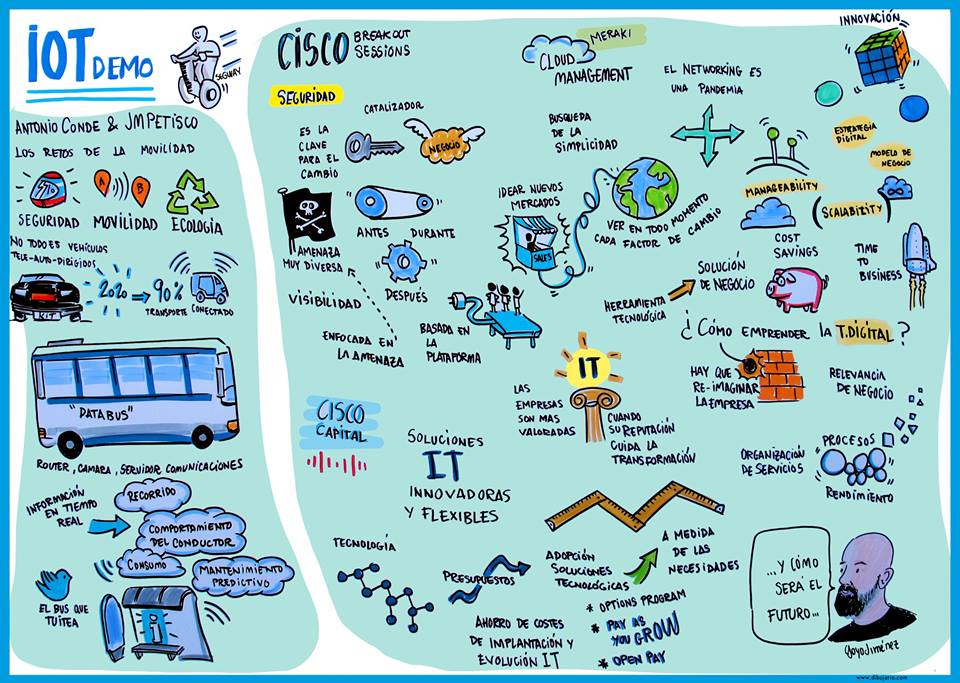 IOT DEMO
SEGWAY
ANTONIO CONDE & JMPETISCO
LOS RETOS DE LA MOVILIDAD
A
B
SEGURIDAD
MOVILIDAD
ECOLOGÍA
NO TODO ES VEHÍCULOS
TELE-AUTO-DIRIGIDOS
KIT
2020
90%
TRANSPORTE
CONECTADO
"DATABUS"
ROUTER, CAMARA, SERVIDOR COMUNICACIONES
INFORMACIÓN
EN TIEMPO
REAL
RECORRIDO
COMPORTAMIENTO
DEL CONDUCTOR
CONSUMO
MANTENIMIENTO
PREDICTIVO
EL BUS QUE
TUITEA
i
CISCO
BREAKOUT
SESSIONS
SEGURIDAD
ES LA
CLAVE
PARA EL
CAMBIO
CATALIZADOR
NEGOCIO
AMENAZA
MUY DIVERSA
ANTES
DURANTE
DESPUÉS
VISIBILIDAD
ENFOCADA EN
LA AMENAZA
BASADA EN
LA PLATAFORMA
CLOUD
MANAGEMENT
MERAKI
BUSQUEDA
DE LA
SIMPLICIDAD
EL NETWORKING ES
UNA PANDEMIA
IDEAR NUEVOS
MERCADOS
SALES
VER EN TODO MOMENTO
CADA FACTOR DE CAMBIO
INNOVACIÓN
ESTRATEGIA
DIGITAL
MODELO DE
NEGOCIO
MANAGEABILITY
(SCALABILITY)
COST
SAVINGS
TIME
TO
BUSINESS
HERRAMIENTA
TECNOLÓGICA
SOLUCIÓN
DE NEGOCIO
¿CÓMO EMPRENDER la T.DIGITAL?
HAY QUE
RE-IMAGINAR
LA EMPRESA
RELEVANCIA
DE NEGOCIO
ORGANIZACIÓN
DE SERVICIOS
PROCESOS
RENDIMIENTO
IT
LAS
EMPRESAS
SON MAS
VALORADAS
CUANDO
SU REPUTACIÓN
GUIDA LA
TRANSFORMACIÓN
CISCO
CAPITAL
SOLUCIONES
IT
INNOVADORAS
Y FLEXIBLES
TECNOLOGÍA
PRESUPUESTOS
ADOPCIÓN
SOLUCIONES
TECNOLÓGICAS
A MEDIDA
DE LAS
NECESIDADES
AHORRO DE COSTES
DE IMPLANTACIÓN Y
EVOLUCIÓN IT
* OPTIONS PROGRAM
* PAY AS
YOU GROW
* OPEN PAY
...Y CÓMO
SERÁ EL
FUTURO...
GoyoJiménez
www.dibujario.com